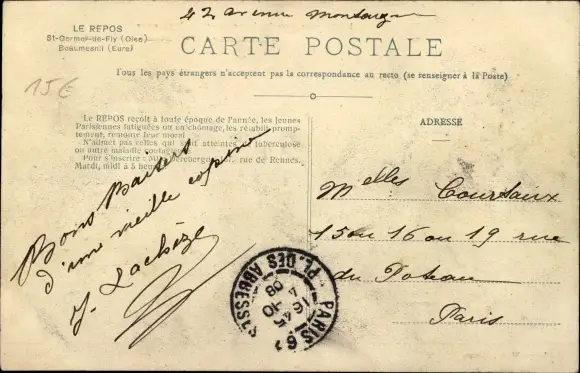 42 avenue Montaigne
LE REPOS
St-Germer-de-Fly (Oise)
Beaumesnil (Eure)
CARTE POSTALE
Tous les pays étrangers n'acceptent pas la correspondance au recto (se renseigner à la Poste)
15€
Le REPOS reçoit à toute époque de l'année, les jeunes
Parisiennes fatiguées ou en chômage, les rétablit promp-
tement, remonte leur moral
N'admet pas celles qui sont atteintes de tuberculose
ou autre maladie contagieuse
Pour s'inscrire : rue de Rennes.
Mardi, midi à 5 heures
Bons Baisers
d'une vieille copine
J. Lachèze
ADRESSE
Melles Courtaux
15 ou 16 ou 19 rue
du Poteau
Paris
PARIS 6
PL. DES ABBESSES
16 45
4 - 10
08